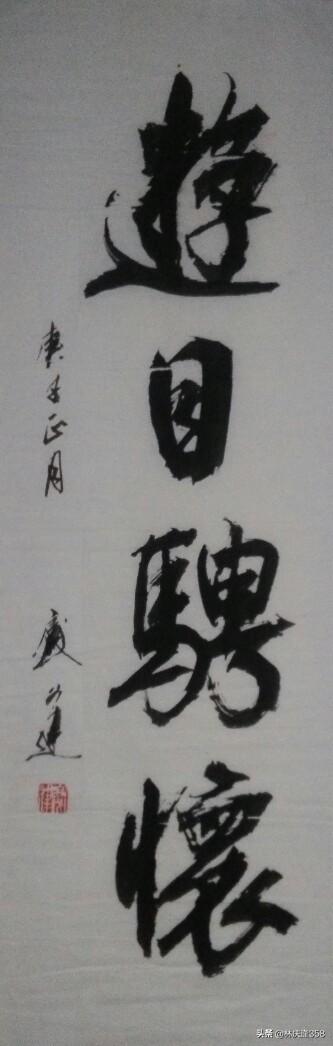 遊目騁懷
庚子正月
头条 @林庆隆358